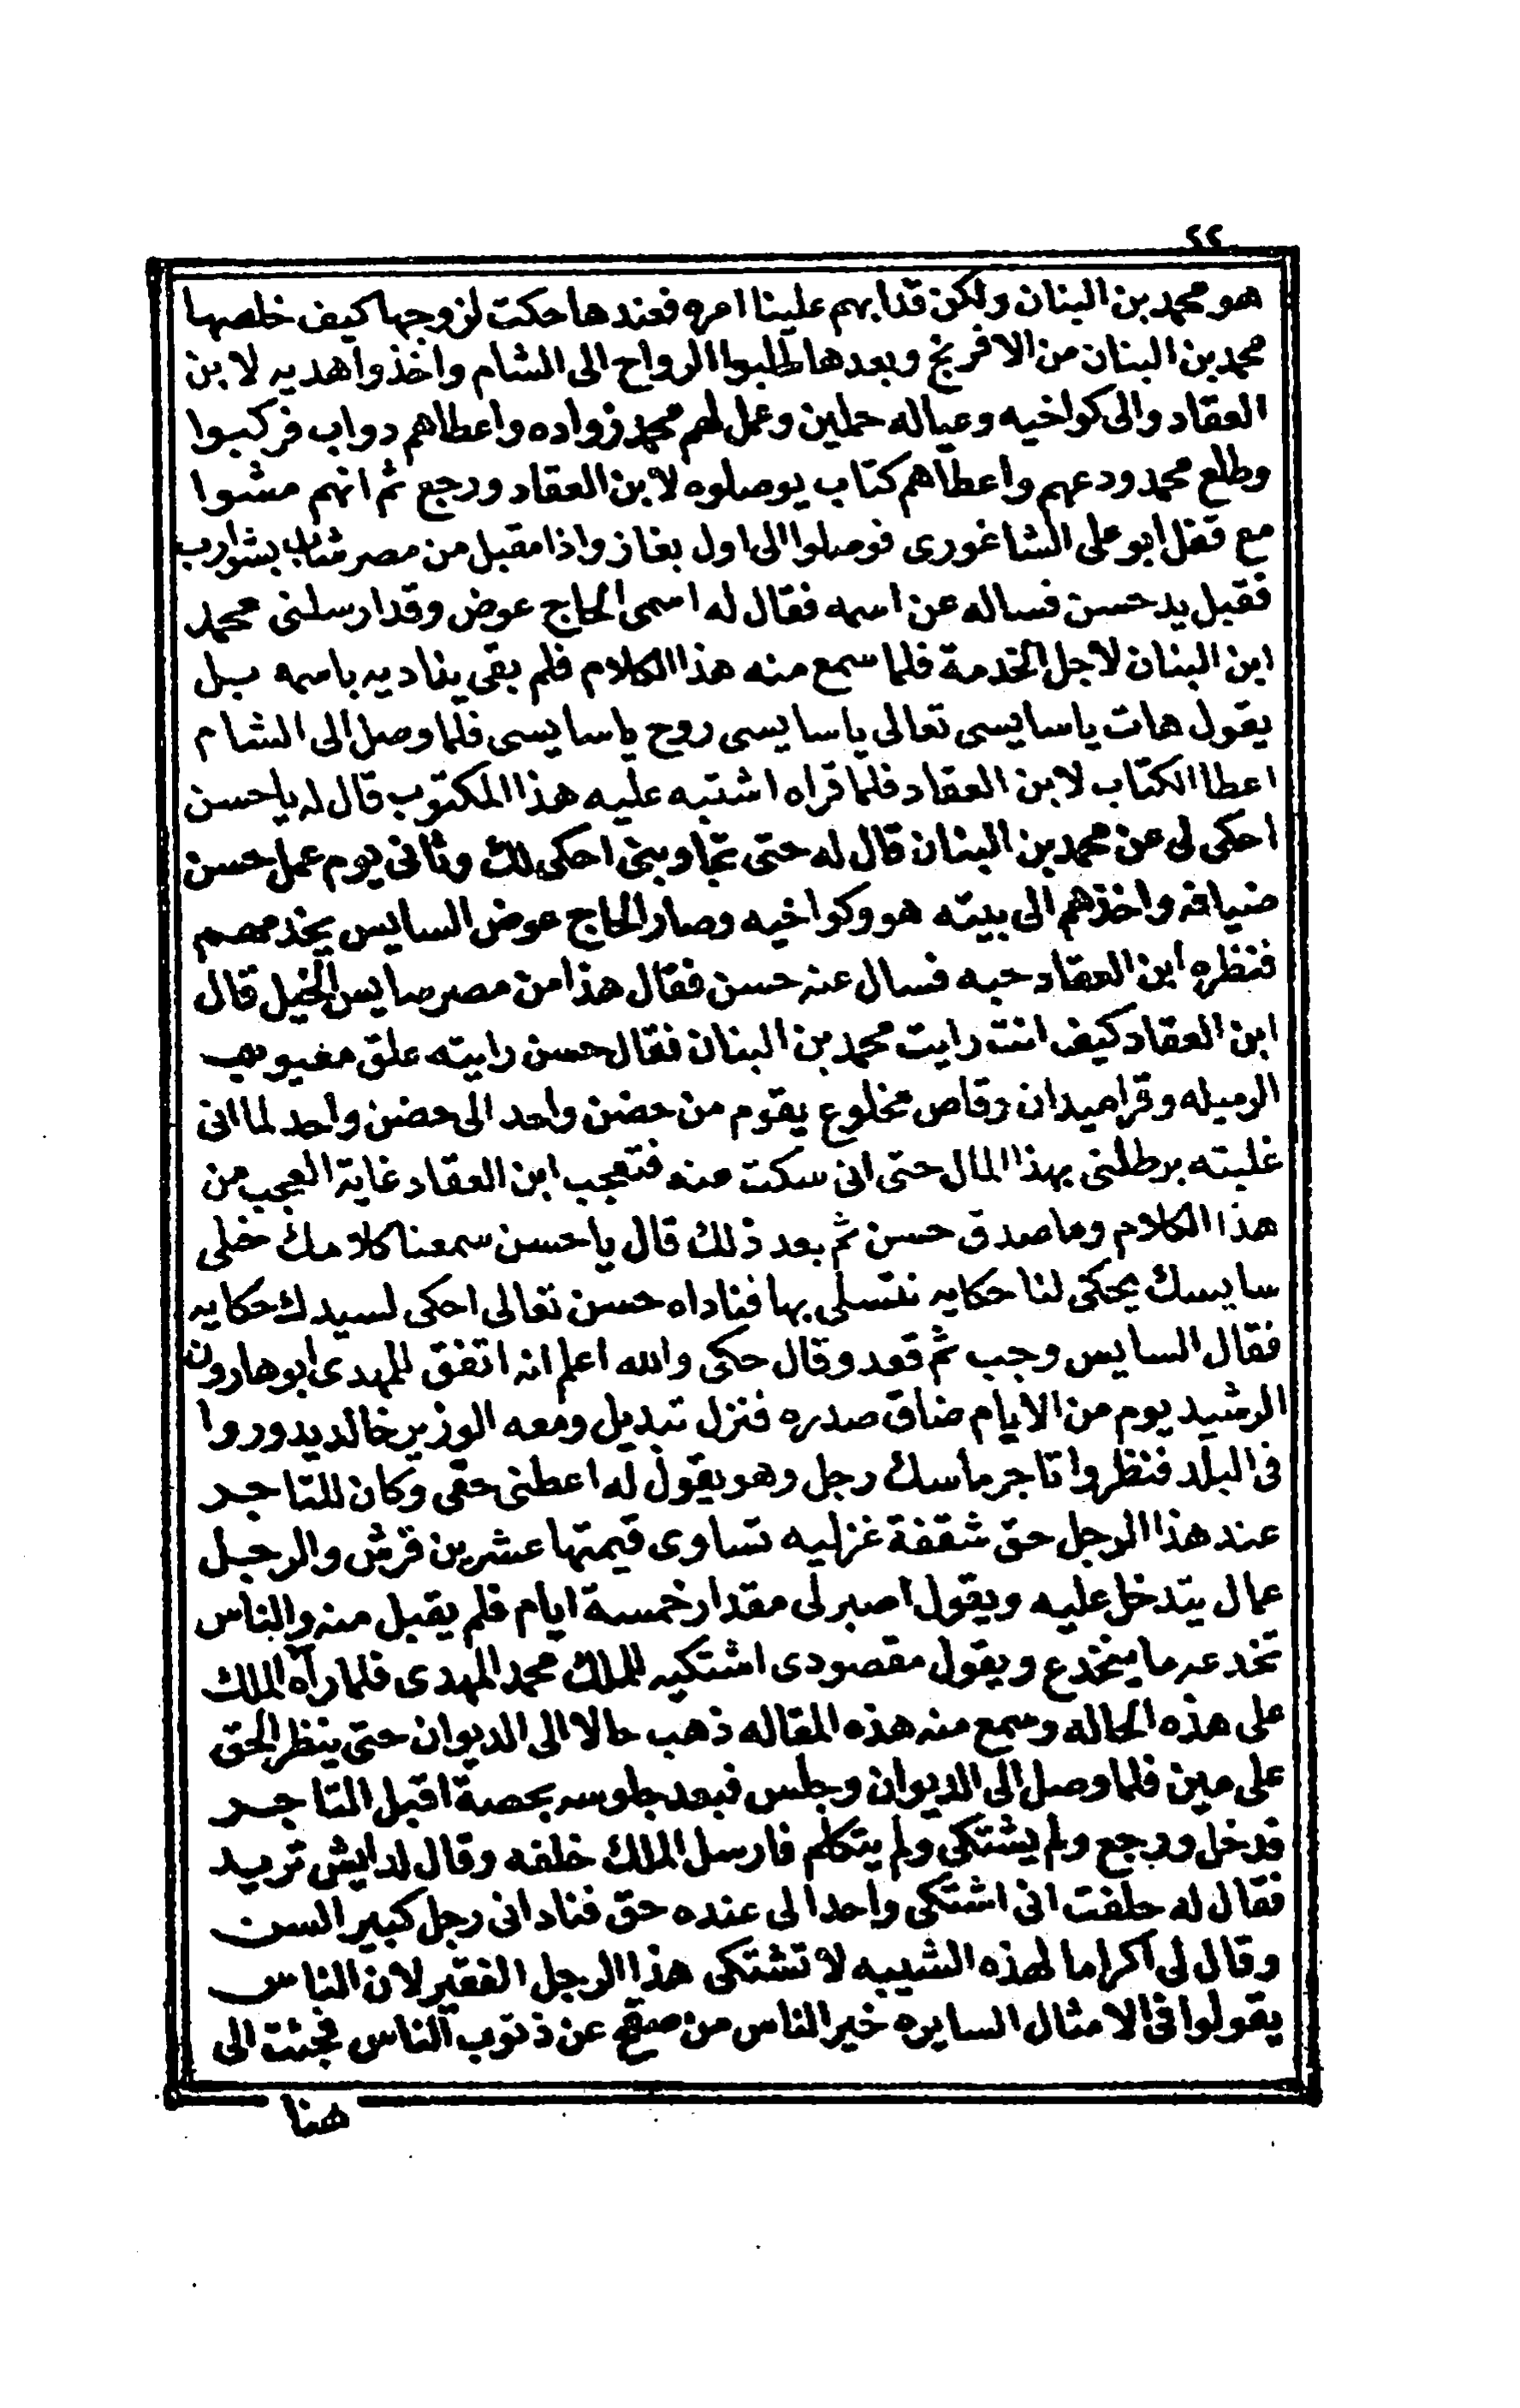 ٢٢
هو محمد بن البنان ولكن قد ابهم علينا امره فعندها حكت لزوجها كيف خلصها
محمد بن البنان من الافرنج وبعدها طلبوا الرواح الى الشام واخذوا هديه لابن
العقاد والى كواخيه وعياله حملين وعمل لهم محمد زواده واعطاهم دواب فركبوا
وطلع محمد ودعهم واعطاهم كتاب يوصلوه لابن العقاد ورجع ثم انهم مشوا
مع قفل ابو على الشاغورى فوصلوا الى اول بغاز واذا مقبل من مصر شاب بشوارب
فقبل يد حسن فساله عن اسمه فقال له اسمى الحاج عوض وقد ارسلنى محمد
ابن البنان لاجل الخدمة فلما سمع منه هذا الكلام فلم بقى يناديه باسمه بل
يقول هات ياسايسى تعالى ياسايسى روح ياسايسى فلما وصل الى الشام
اعطا الكتاب لابن العقاد فلما قراه اشتبه عليه هذا المكتوب قال له ياحسن
احكى لى عن محمد بن البنان قال له حتى تجاوبنى احكى لك وثانى يوم عمل حسن
ضيافه واخذهم الى بيته هو وكواخيه وصار الحاج عوض السايس يخدمهم
فنظره ابن العقاد حبه فسال عنه حسن فقال هذا من مصر سايس الخيل قال
ابن العقاد كيف انت رايت محمد بن البنان فقال حسن رايته علق مغيوب
الرميله وقراميدان رقاص مخلوع يقوم من حضن واحد الى حضن واحد لما انى
غلبته برطلنى بهذا المال حتى انى سكت عنه فتعجب ابن العقاد غاية العجب من
هذا الكلام وما صدق حسن ثم بعد ذلك قال ياحسن سمعنا كلامك خلى
سايسك يحكى لنا حكايه نتسلى بها فناداه حسن تعالى احكى لسيدك حكايه
فقال السايس وجب ثم قعد وقال حكى والله اعلم انه اتفق للمهدى ابو هارون
الرشيد يوم من الايام ضاق صدره فنزل تبديل ومعه الوزير خالد يدوروا
فى البلد فنظروا تاجر ماسك رجل وهو يقول له اعطنى حقى وكان للتاجر
عند هذا الرجل حق شقفة غزليه تساوى قيمتها عشرين قرش والرجل
عمال يتدخل عليه ويقول اصبر لى مقدار خمسة ايام فلم يقبل منه والناس
تخدعه ما ينخدع ويقول مقصودى اشتكيه للملك محمد المهدى فلما رآه الملك
على هذه الحاله وسمع منه هذه المقاله ذهب حالا الى الديوان حتى ينظر الحق
على مين فلما وصل الى الديوان وجلس فبعد جلوسه بحصة اقبل التاجر
فدخل ورجع ولم يشتكى ولم يتكلم فارسل الملك خلفه وقال له ايش تريد
فقال له حلفت انى اشتكى واحدا لى عنده حق فنادانى رجل كبير السن
وقال لى اكراما لهذه الشيبه لا تشتكى هذا الرجل الفقير لان الناس
يقولوا فى الامثال السايره خير الناس من صفح عن ذنوب الناس فجئت الى
هنا